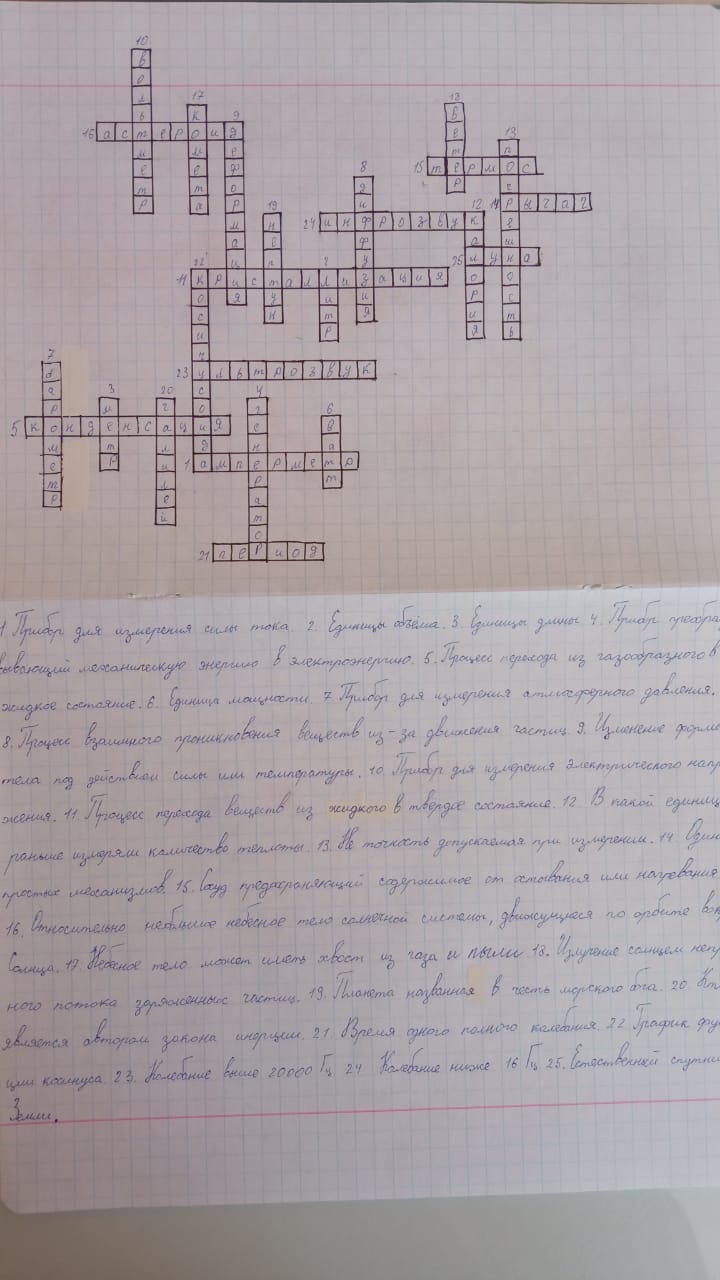 10
вольтметр
17
комета
9
деформация
16 астероид
18
ветер
13
погрешность
15 термос
8
диффузия
14 рычаг
19
нептун
24 инфрозвук
12
калория
25 луна
22
косинусоида
11 кристаллизация
2
литр
23 ультрозвук
7
барометр
3
метр
20
галилей
4
генератор
6
ватт
5 конденсация
1 амперметр
21 период
1 Прибор для измерения силы тока. 2. Единицы объёма. 3. Единицы длины 4. Прибор преобра
вывающий механическую энергию в электроэнергию. 5. Процесс перехода из газообразного в
жидкое состояние. 6. Единица мощности. 7 Прибор для измерения атмосферного давления.
8. Процесс взаимного проникновения веществ из-за движения частиц. 9. Изменение форме
тела под действием силы или температуры. 10. Прибор для измерения электрического напр
жения. 11. Процесс перехода веществ из жидкого в твердое состояние. 12 В какой единиц
раньше измеряли количество теплоты. 13. Не точность допускаемая при измерении. 14. Один
простых механизмов. 15. Сосуд предохраняющий содержимое от остывания или нагревания
16. Относительно небольшое небесное тело солнечной системы, движущиеся по орбите вок
Солнца. 17. Небесное тело может иметь хвост из газа и пыли. 18. Излучение солнцем непр
ного потока заряженных частиц. 19. Планета названная в честь морского бога. 20. Кт
является автором закона инерции. 21. Время одного полного колебания. 22. График фу
ции косинуса. 23. Колебание выше 20000 Гц 24 Колебание ниже 16 Гц 25. Естественней спутни
Земли.